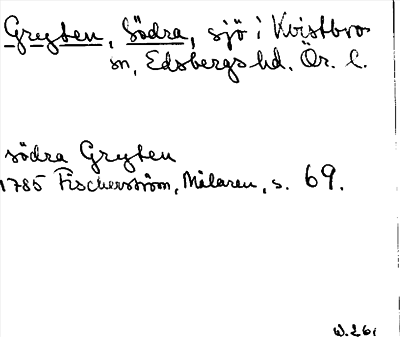 Gryten, Södra, sjö i Kvistbro
sn, Edsbergs hd. Ör. l.
södra Gryten
1785 Fischerström, Mälaren, s. 69.